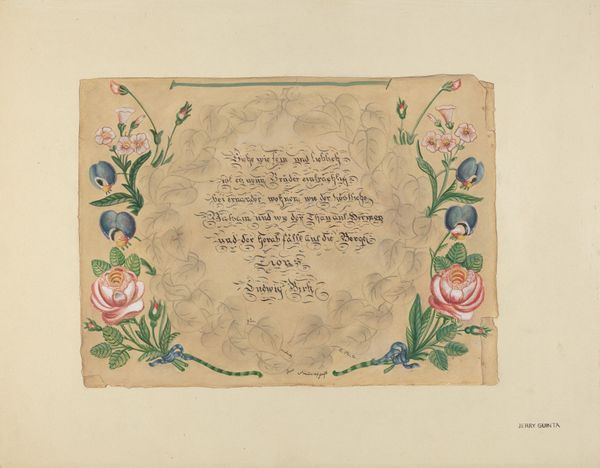 Siehe wie fein und lieblich
ist es wenn Brüder einträchtig
bei einander wohnen, wie der köstliche
Balsam und wie der Thau auf Hermon
und der herab fällt auf die Berge
Zions
Ludwig
JERRY GUINTA